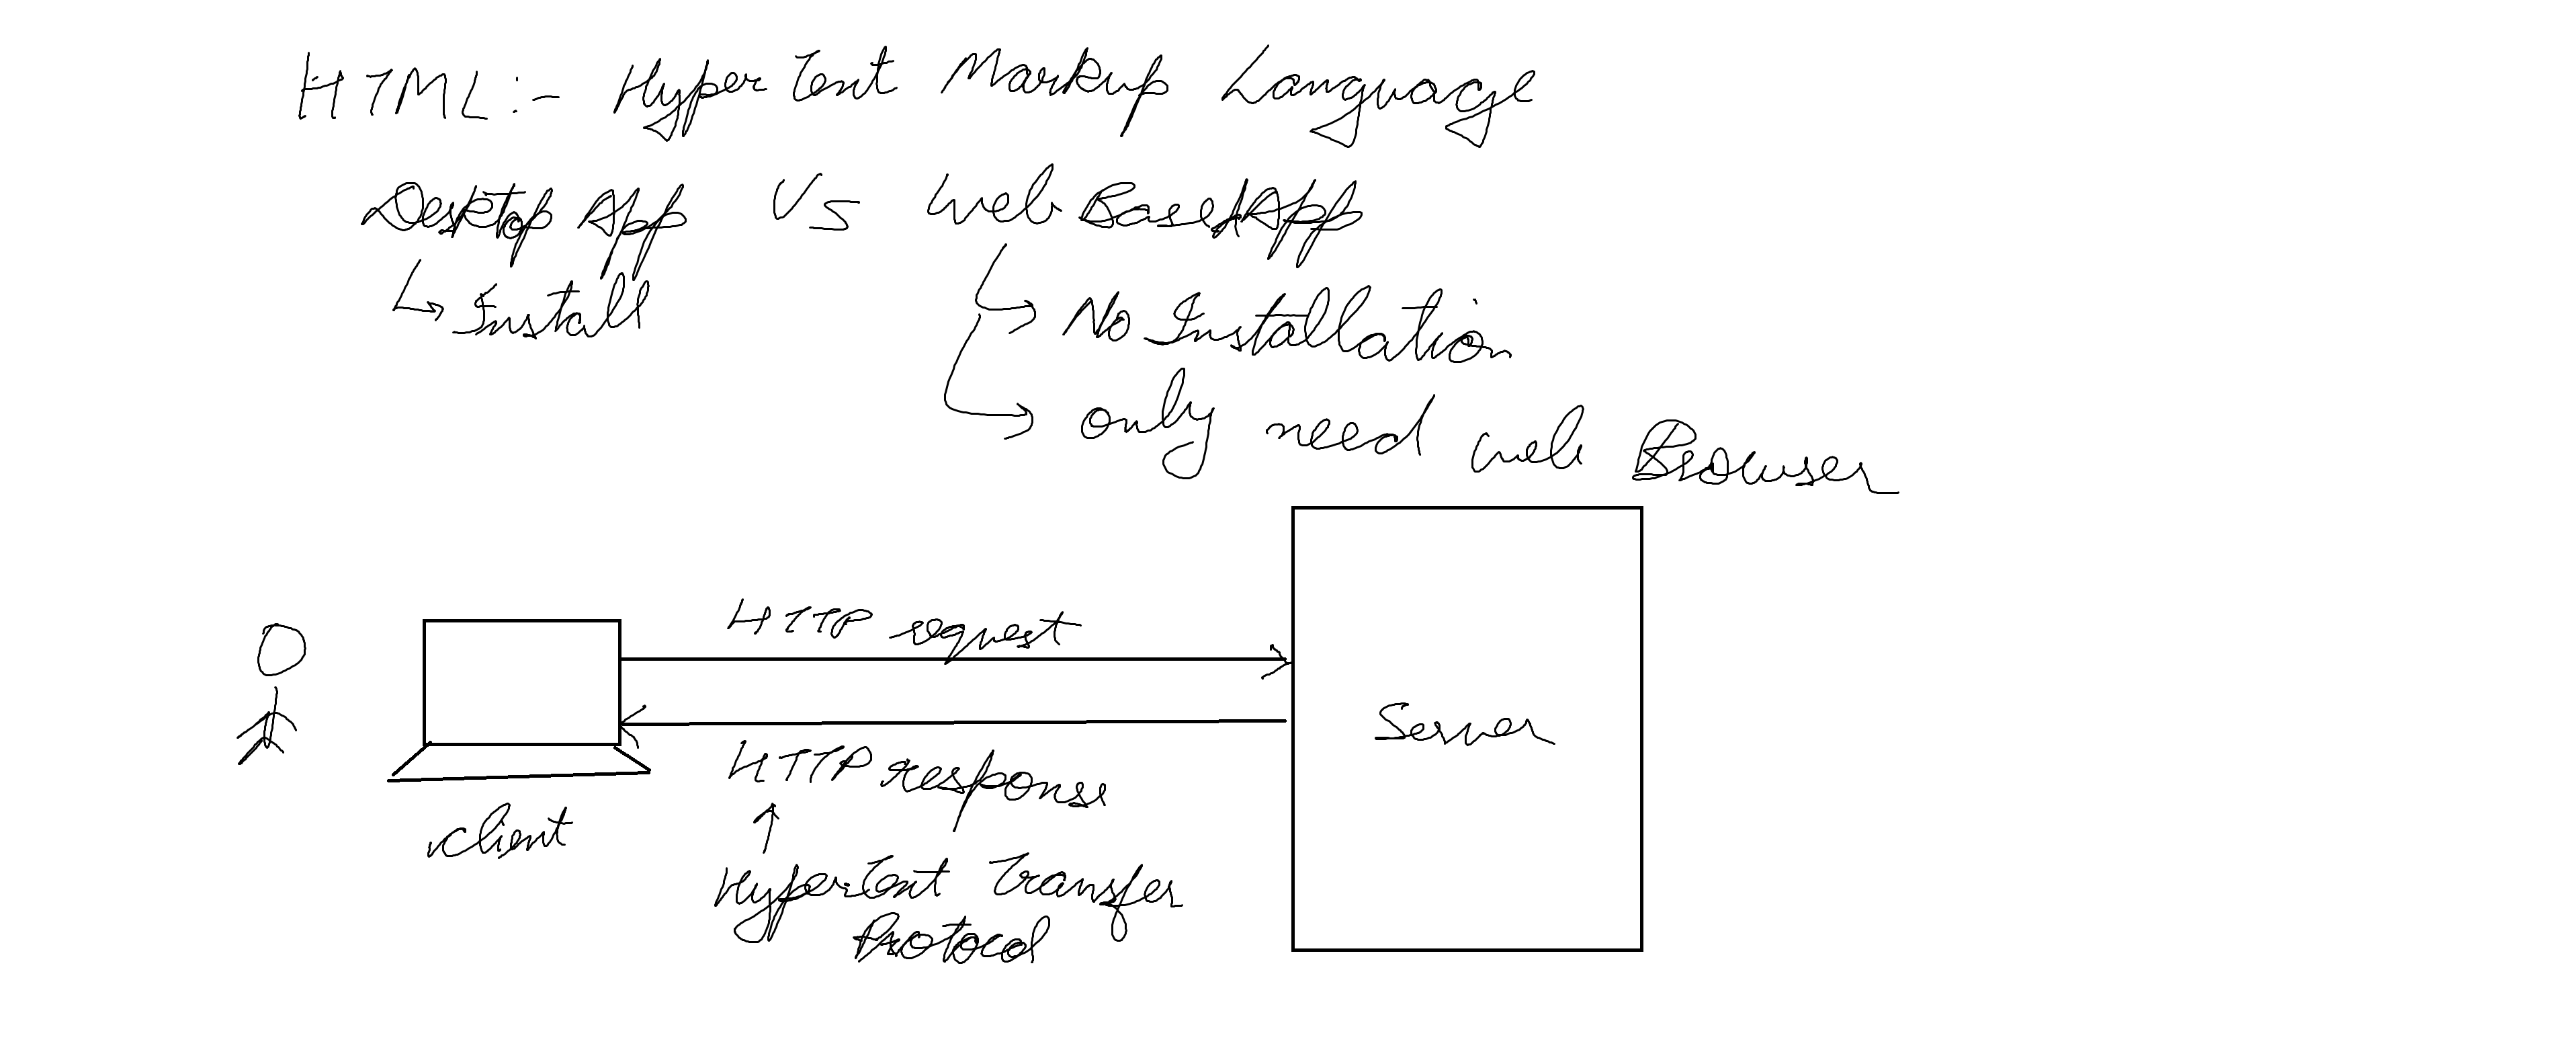 HTML:- Hyper Text Markup Language
Desktop App Vs Web Based App
Install
No Installation
only need web Browser
HTTP request
Server
HTTP response
client
HyperText Transfer
Protocol